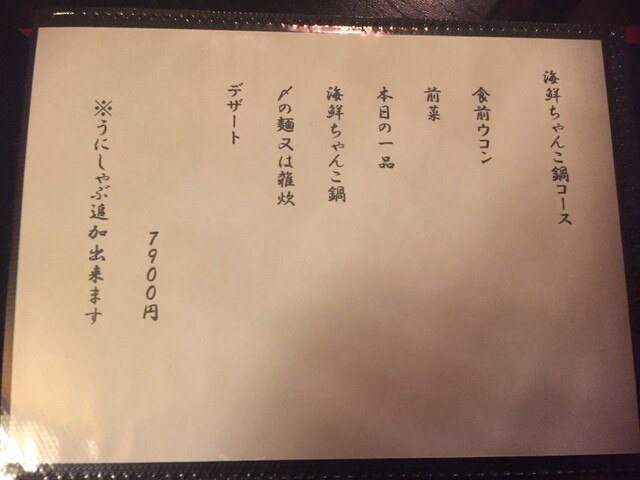 海鮮ちゃんこ鍋コース
食前ウコン
前菜
本日の一品
海鮮ちゃんこ鍋
〆の麺又は雑炊
デザート
7900円
※うにしゃぶ追加出来ます